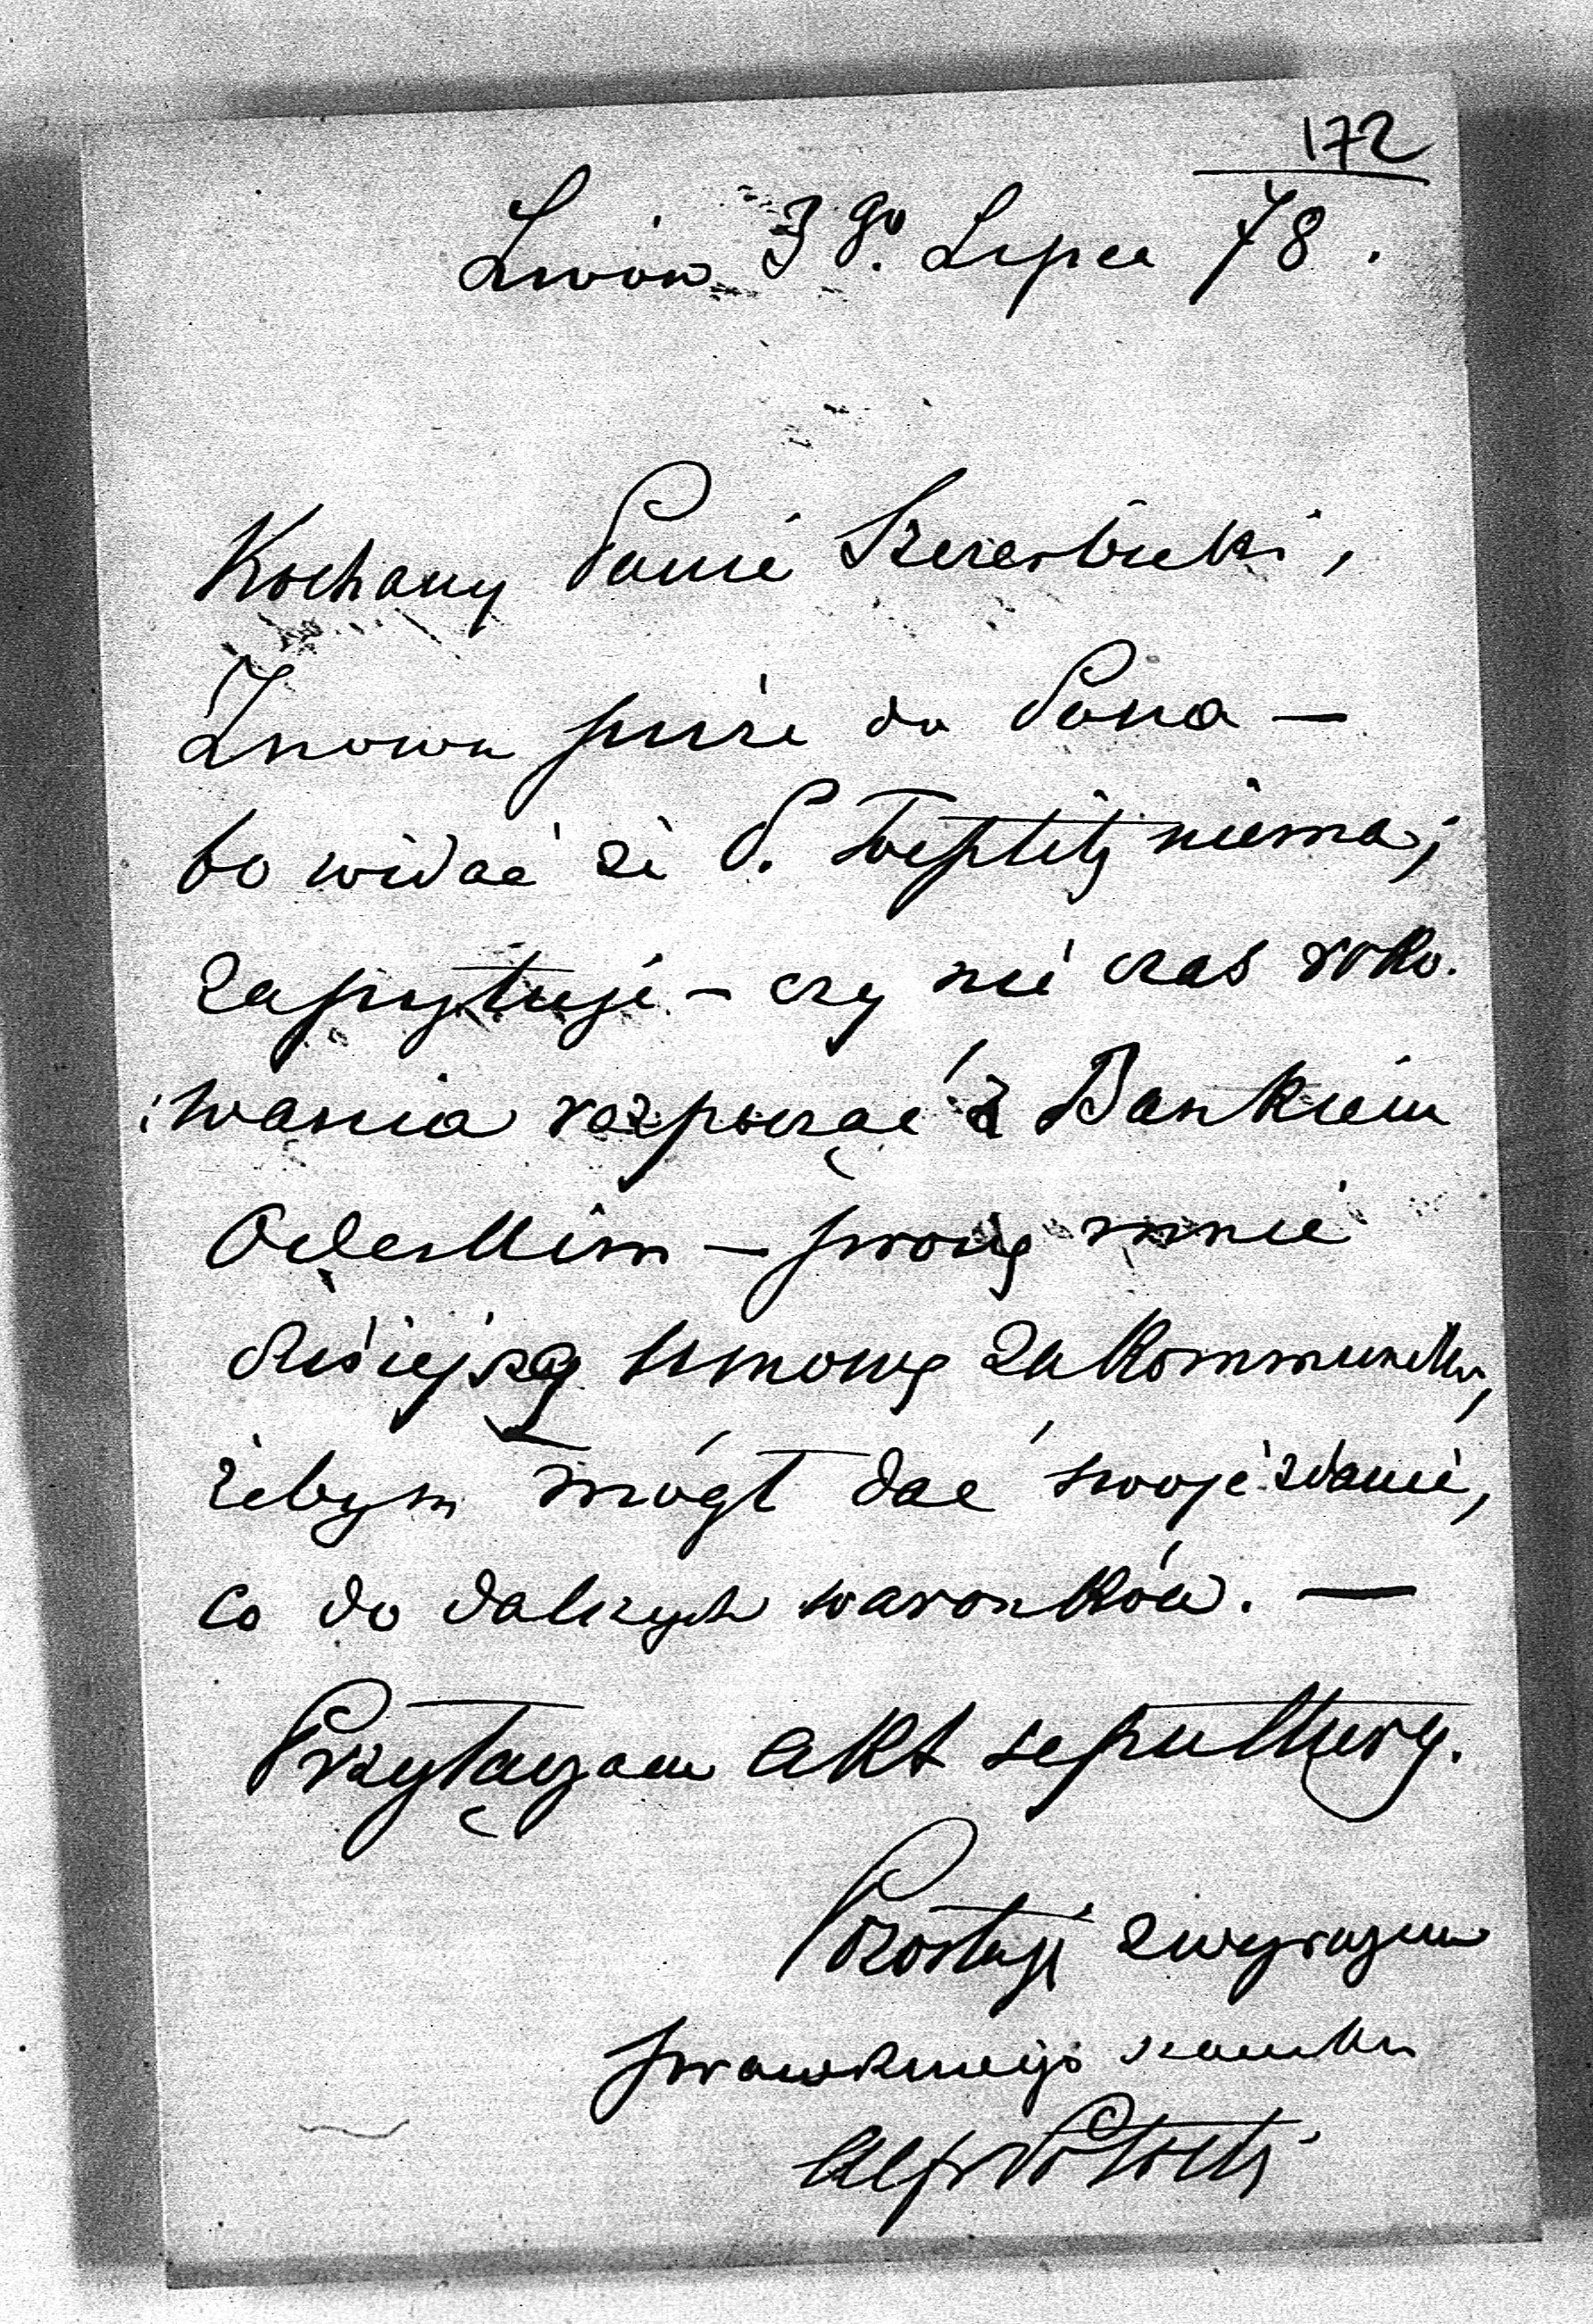 172
Lwów 3go. Lipca 78.
Kochany Panie Szczerbicki,
Znowu piszę do Pana —
bo widać że P. niema;
zapytuję — czy nie czas roko-
wania rozpocząć z Bankiem
Odeskim — proszę mnie
dzisiejszą umowę zakommunik,
żebym mógł dać swoje zdanie,
co do dalszych warunków. —
Przyłączam akt sepultury.
Pozostaję z wyrazem
prawdziwego szacunku
Alfr Potocki